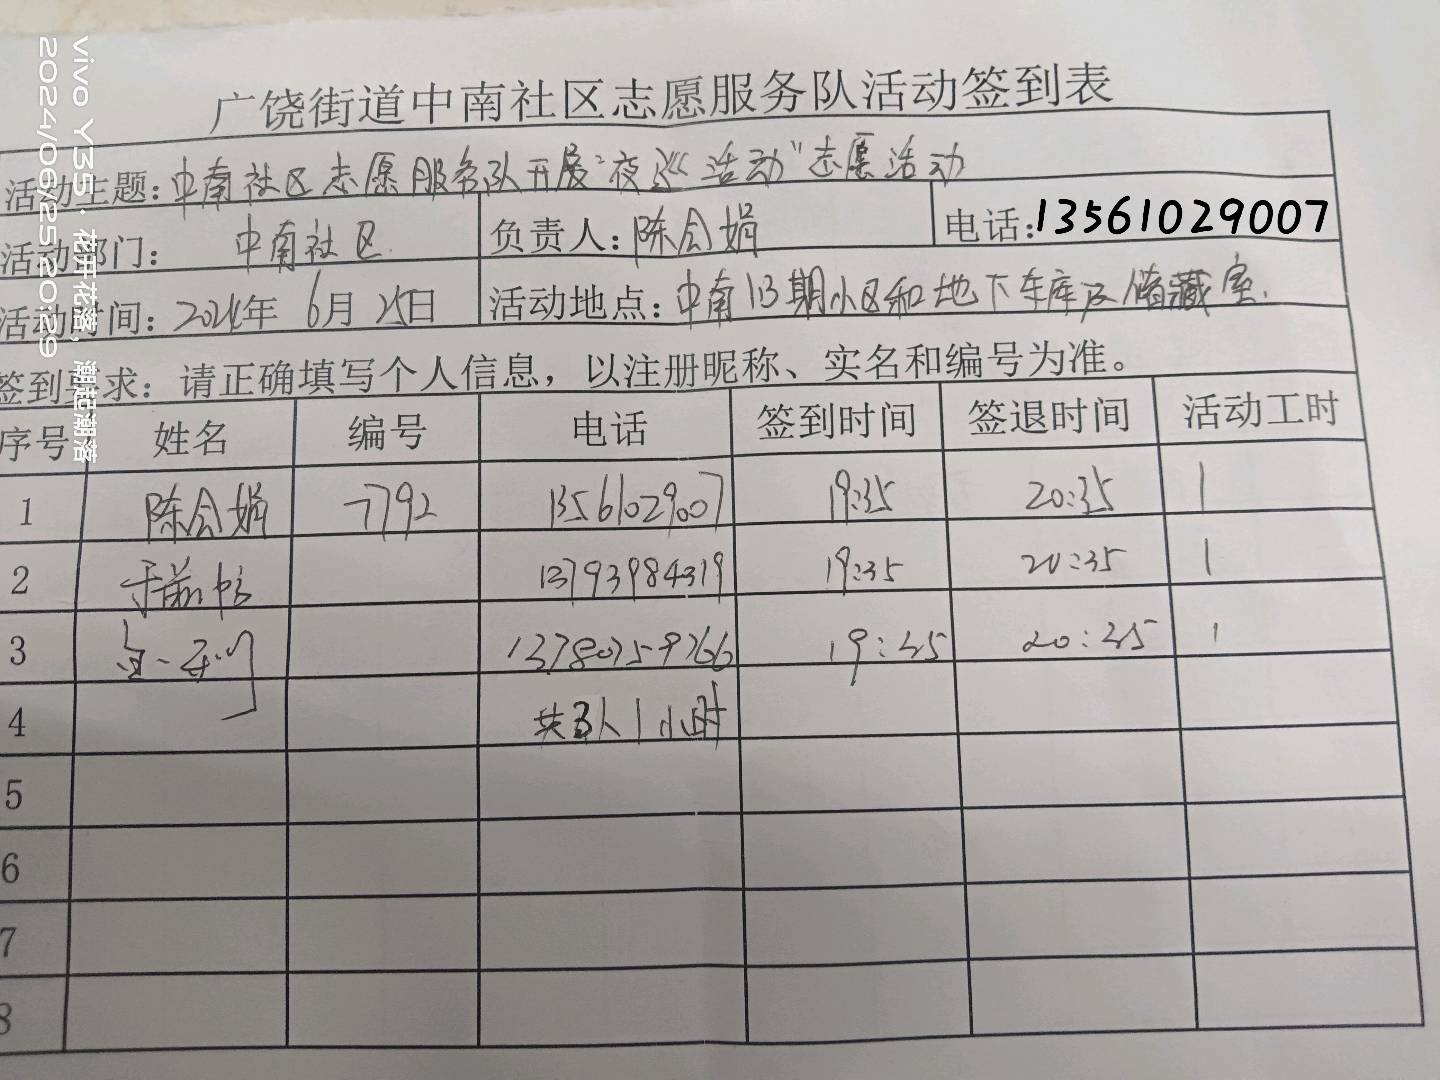 vivo Y35 · 花开花落，潮起潮落
2024/06/25 20:29
广饶街道中南社区志愿服务队活动签到表
活动主题: 中南社区志愿服务队开展"夜巡活动"志愿活动
活动部门: 中南社区 负责人: 陈会娟 电话: 13561029007
活动时间: 2024年 6月 25日 活动地点: 中南1B期小区和地下车库及储藏室.
签到要求: 请正确填写个人信息，以注册昵称、实名和编号为准。
序号 姓名 编号 电话 签到时间 签退时间 活动工时
1 陈会娟 7792 13561029007 19:35 20:35 1
2 13793984319 19:35 20:35 1
3 19:35 20:35 1
4 共3人1小时
5
6
7
8